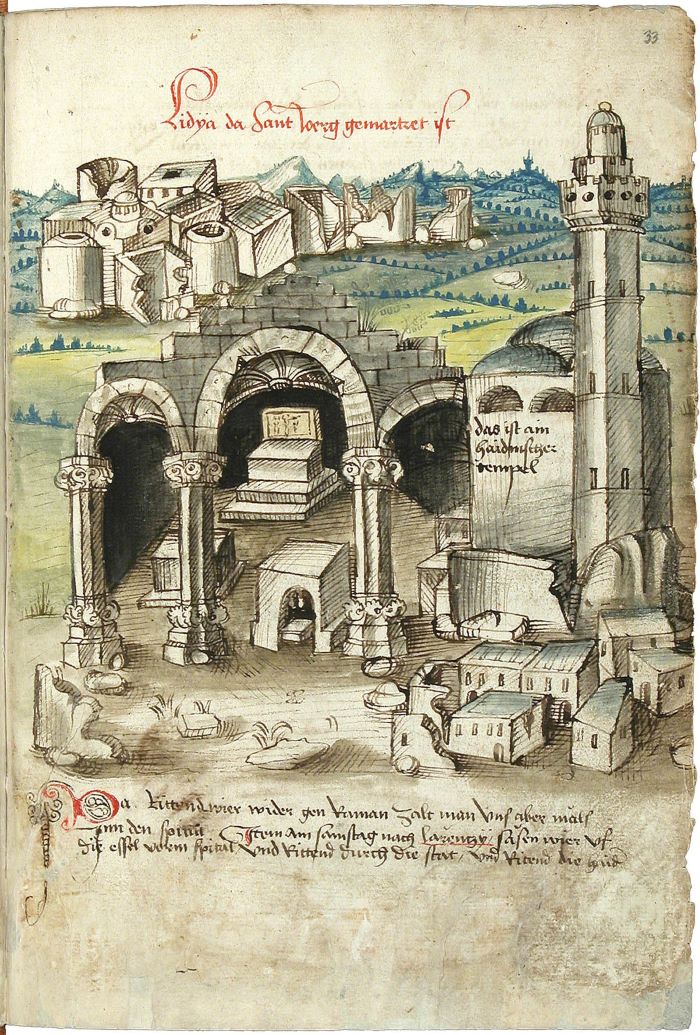 33
Lidya da sant Joerg gemartret ist
das ist am
haidnischer
tempel
Da Rittend wier wider gen Raman zalt man vns aber mals
jnn den spital Item am samstag nach larentzy sasen wier vf
die essel vorm spital vnd Rittend durch die stat vnd Ritend die